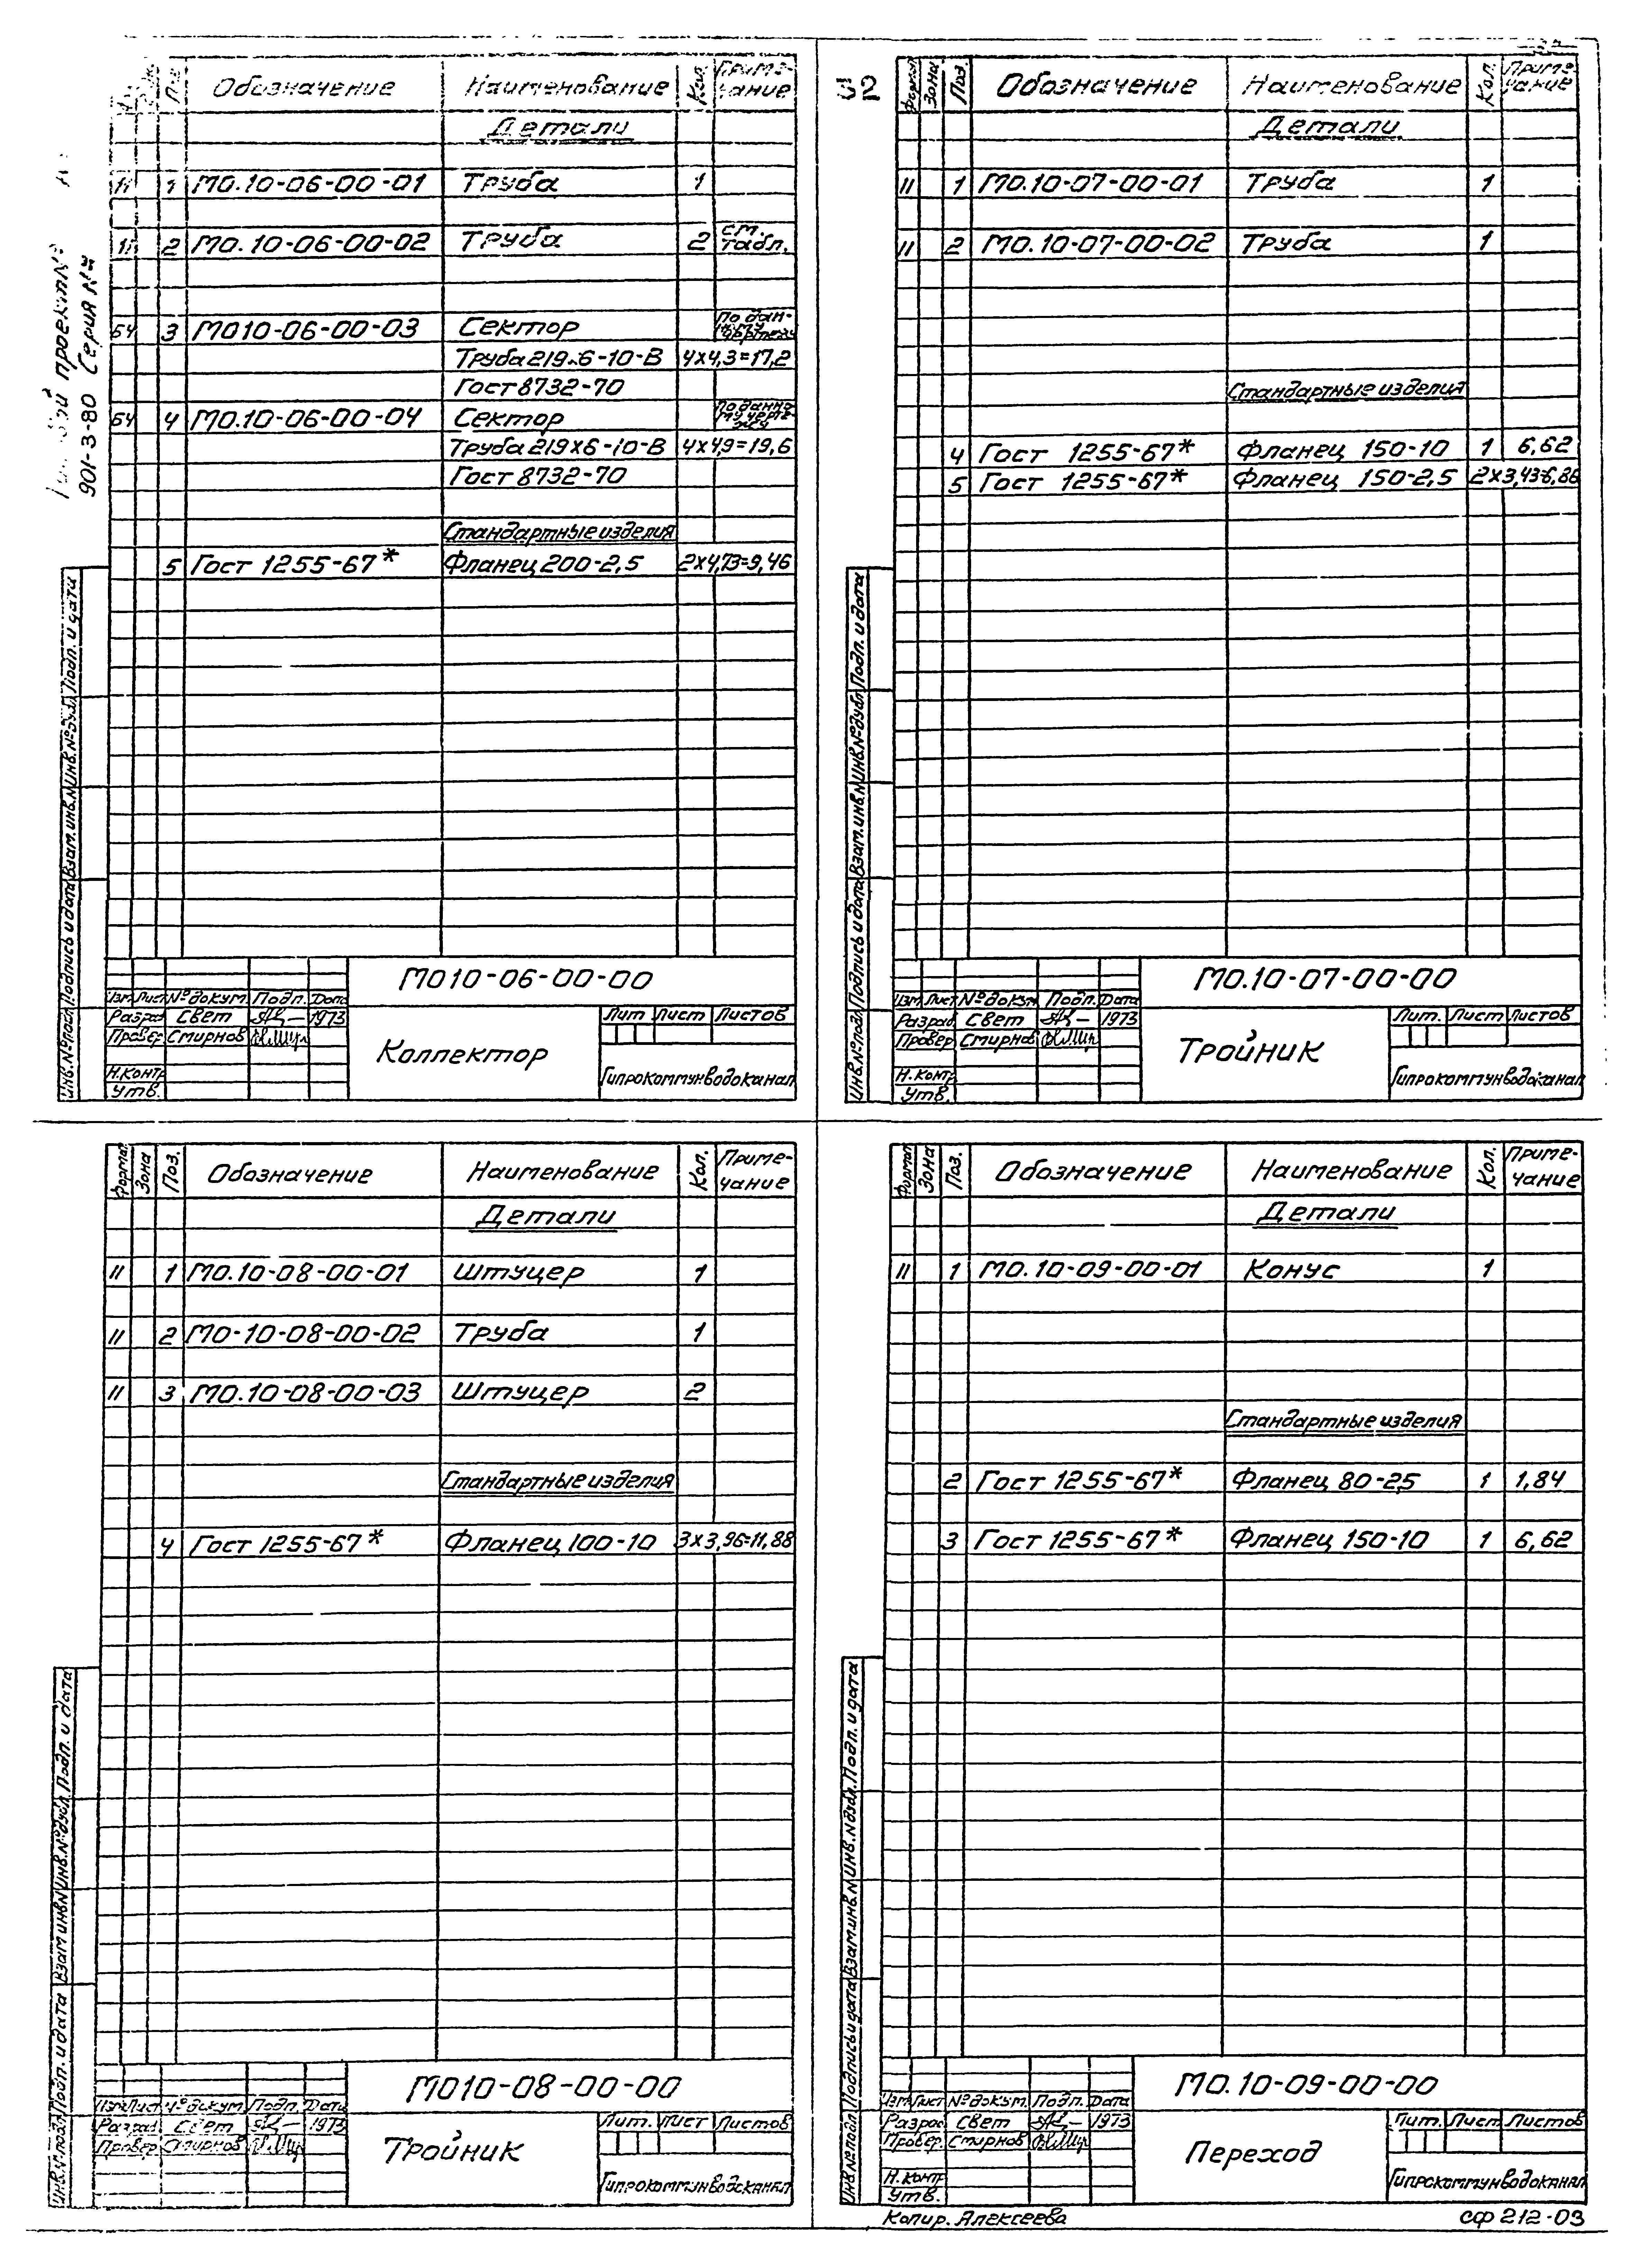 901-3-80 Серия №4
Обозначение Наименование Кол. Приме-
чание
Детали
11 1 МО.10-06-00-01 Труба 1
11 2 МО.10-06-00-02 Труба 2 см. табл.
БЧ 3 МО10-06-00-03 Сектор
Труба 219х6-10-В 4х4,3=17,2
Гост 8732-70
БЧ 4 МО.10-06-00-04 Сектор По данно-
му черте-
жу
Труба 219х6-10-В 4х4,9=19,6
Гост 8732-70
Стандартные изделия
5 Гост 1255-67* Фланец 200-2,5 2х4,73=9,46
Подп. и дата
Инв.№дубл.
Взам.инв.№
Подпись и дата
Инв.№подл.
МО10-06-00-00
Изм. Лист №докум. Подп. Дата
Разраб. Свет 1973
Провер. Смирнов
Н.контр.
Утв.
Коллектор
Лит Лист Листов
Гипрокоммунводоканал
32
Формат Зона Поз. Обозначение Наименование Кол. Приме-
чание
Детали
11 1 МО.10-07-00-01 Труба 1
11 2 МО.10-07-00-02 Труба 1
Стандартные изделия
4 Гост 1255-67* Фланец 150-10 1 6,62
5 Гост 1255-67* Фланец 150-2,5 2х3,43=6,86
Подп. и дата
Инв.№дубл.
Взам.инв.№
Подпись и дата
Инв.№подл.
МО.10-07-00-00
Изм. Лист №докум. Подп. Дата
Разраб. Свет 1973
Провер. Смирнов
Н.контр.
Утв.
Тройник
Лит. Лист Листов
Гипрокоммунводоканал
Формат Зона Поз. Обозначение Наименование Кол. Приме-
чание
Детали
11 1 МО.10-08-00-01 Штуцер 1
11 2 МО-10-08-00-02 Труба 1
11 3 МО.10-08-00-03 Штуцер 2
Стандартные изделия
4 Гост 1255-67* Фланец 100-10 3х3,96=11,88
Подп. и дата
Инв.№дубл.
Взам инв.№
Подп. и дата
Инв.№подл.
МО10-08-00-00
Изм. Лист №докум. Подп. Дата
Разраб. Свет 1973
Провер. Смирнов
Тройник
Лит. Лист Листов
Гипрокоммунводоканал
Формат Зона Поз. Обозначение Наименование Кол. Приме-
чание
Детали
11 1 МО.10-09-00-01 Конус 1
Стандартные изделия
2 Гост 1255-67* Фланец 80-2,5 1 1,84
3 Гост 1255-67* Фланец 150-10 1 6,62
Подп. и дата
Инв.№дубл.
Взам.инв.№
Подпись и дата
Инв №подл
МО.10-09-00-00
Изм. Лист №докум. Подп. Дата
Разраб. Свет 1973
Провер. Смирнов
Н.контр.
Утв.
Переход
Лит. Лист Листов
Гипрокоммунводоканал
Копир. Алексеева
сф 212-03